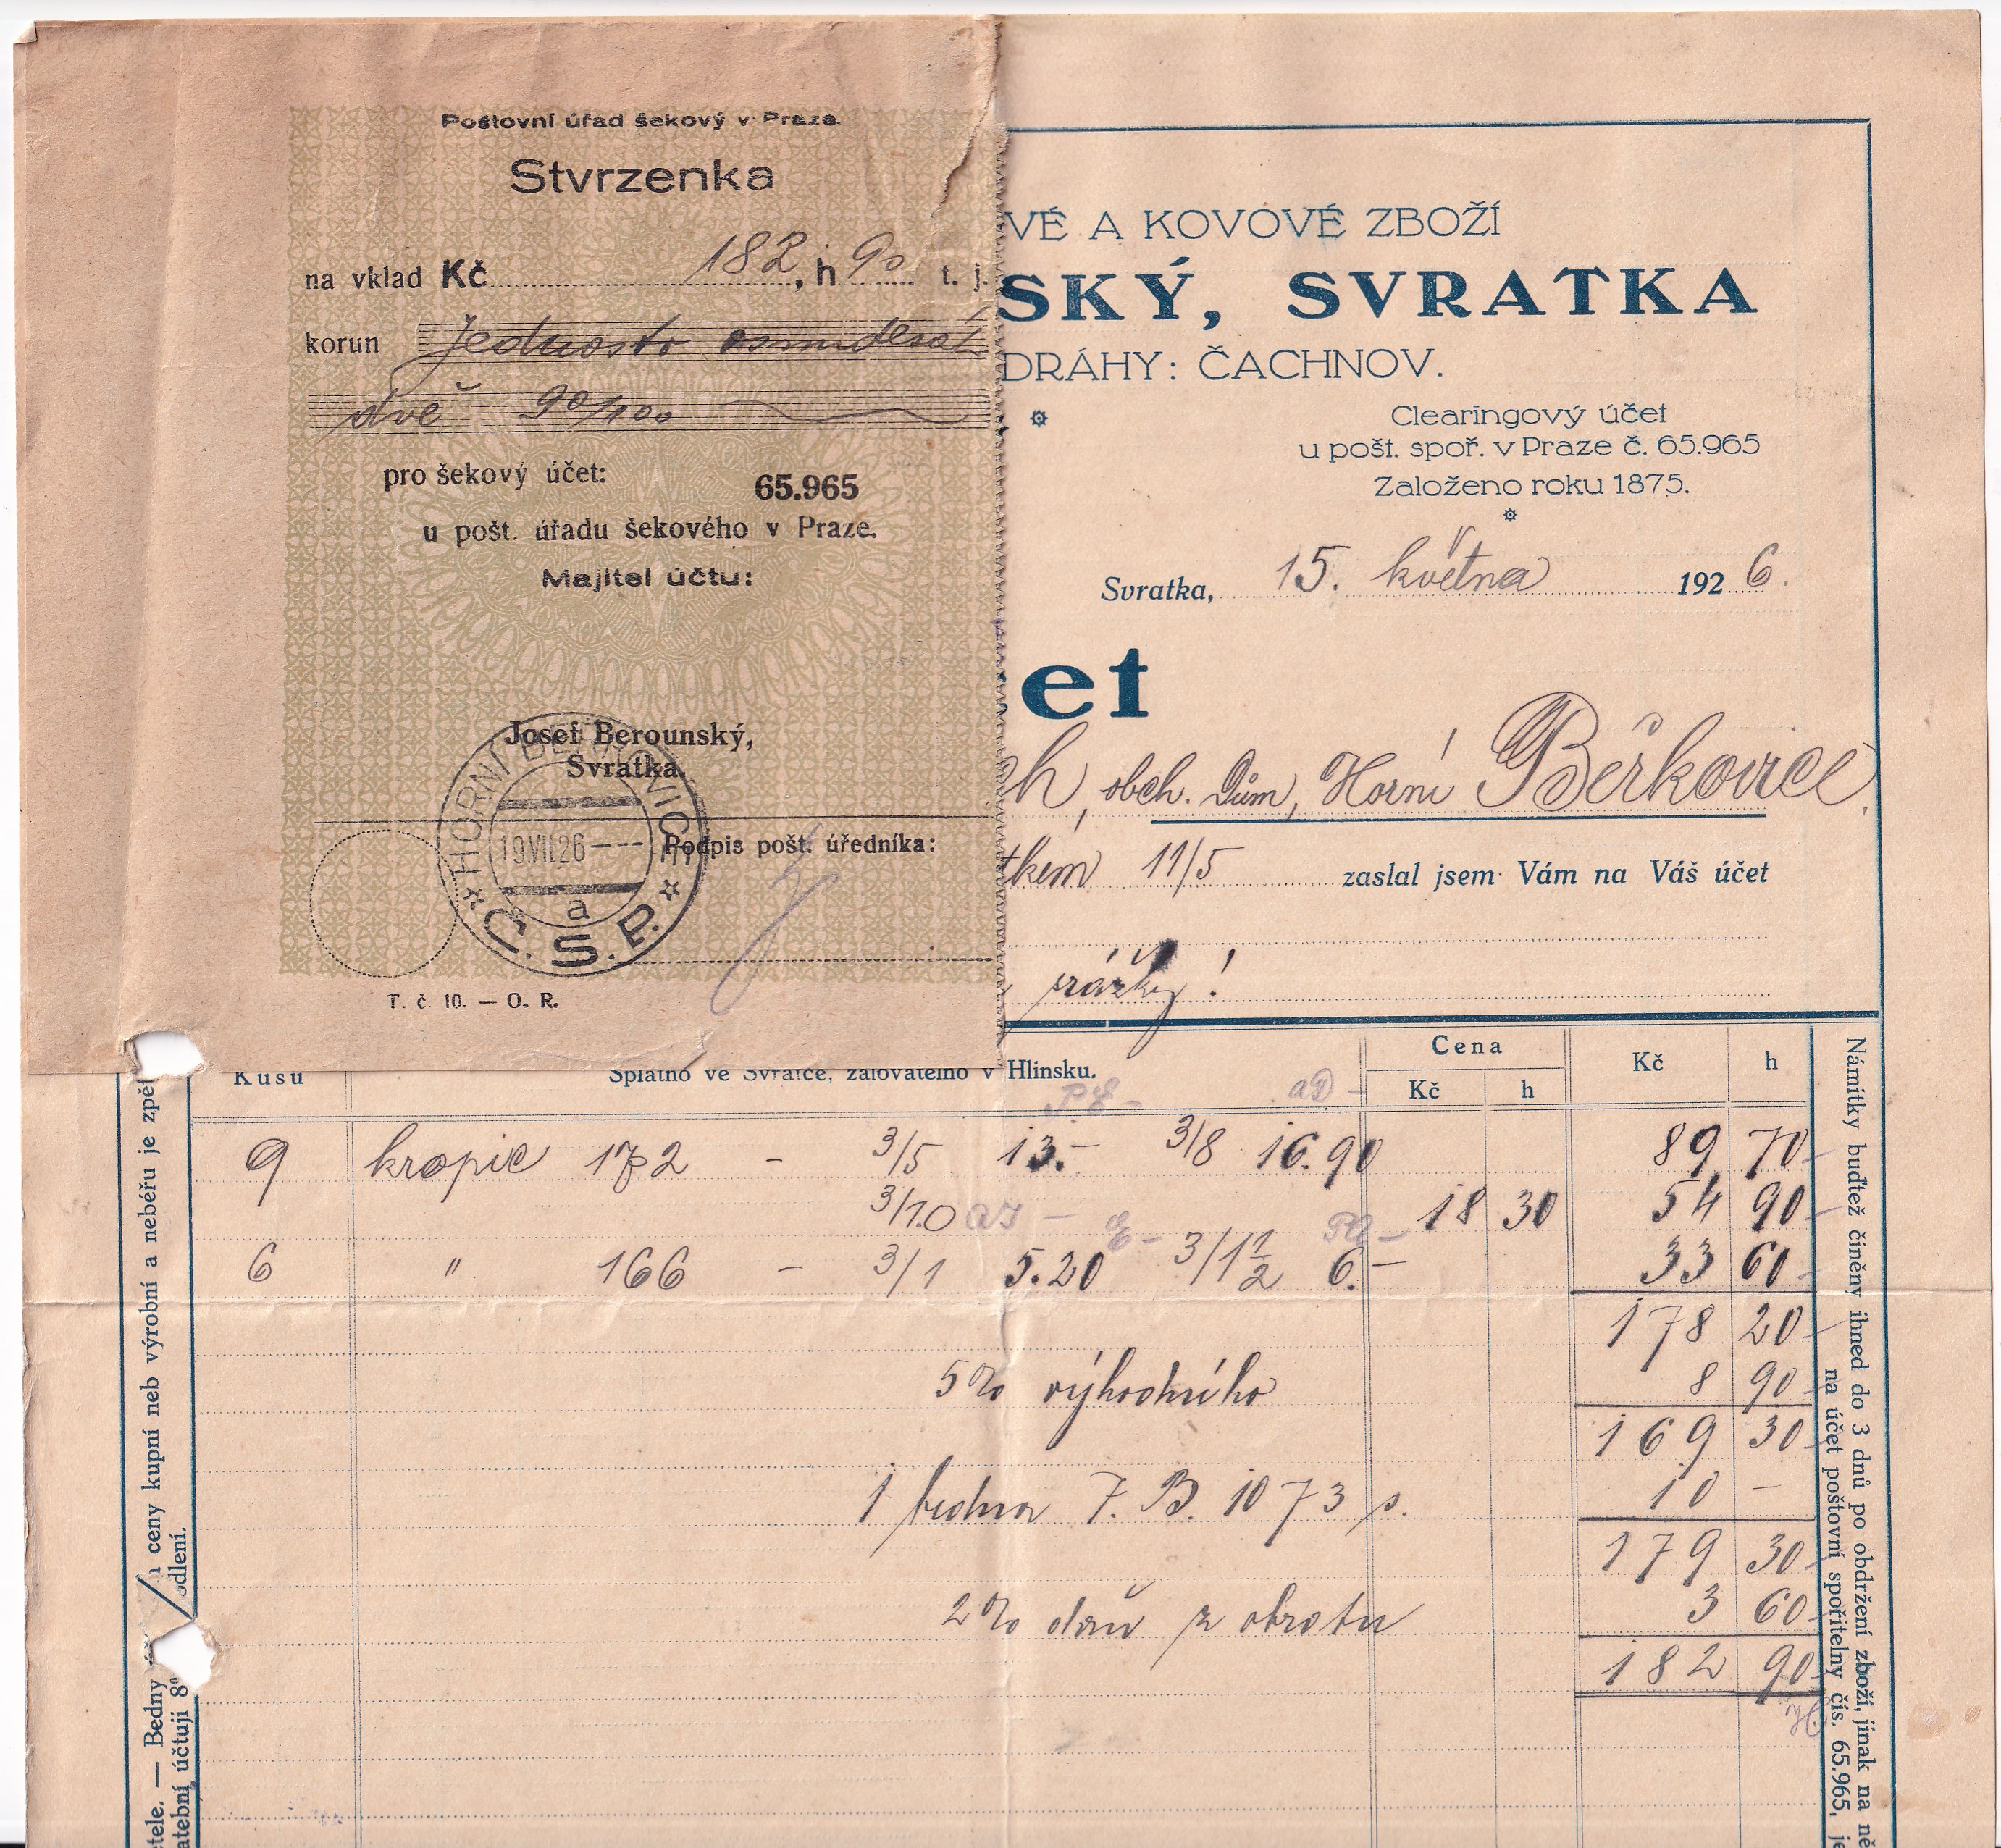 Poštovní úřad šekový v Praze.
Stvrzenka
na vklad Kč 182, h 90 t. j.
korun jednosto osmdesát
dvě 90/100
pro šekový účet: 65.965
u pošt. úřadu šekového v Praze.
Majitel účtu:
Josef Berounský,
Svratka.
HORNÍ BEŘKOVICE
19.VII.26
a
Č.S.P.
Podpis pošt. úředníka:
T. č. 10. — O. R.
VÉ A KOVOVÉ ZBOŽÍ
SKÝ, SVRATKA
DRÁHY: ČACHNOV.
Clearingový účet
u pošt. spoř. v Praze č. 65.965
Založeno roku 1875.
Svratka, 15. května 1926.
et
ch, obch. Dům, Horní Běřkovice,
tkem 11/5 zaslal jsem Vám na Váš účet
srážky!
Kusů Splatno ve Svratce, žalovatelno v Hlinsku. Cena Kč h
Kč h
9 kropic 172 - 3/5 13.- 3/8 16.90 89 70
3/10 18 30 54 90
6 " 166 - 3/1 5.20 3/1 1/2 6.- 33 60
178 20
5% výhodního 8 90
169 30
1 bedna F. B. 1073 10 -
179 30
2% daň z obratu 3 60
182 90
ceny kupní neb výrobní a neběřu je zpět
odlení.
tele. — Bedny
atební účtuji 8%
Námitky buďtež činěny ihned do 3 dnů po obdržení zboží, jinak na ně
na účet poštovní spořitelny čís. 65.965, je